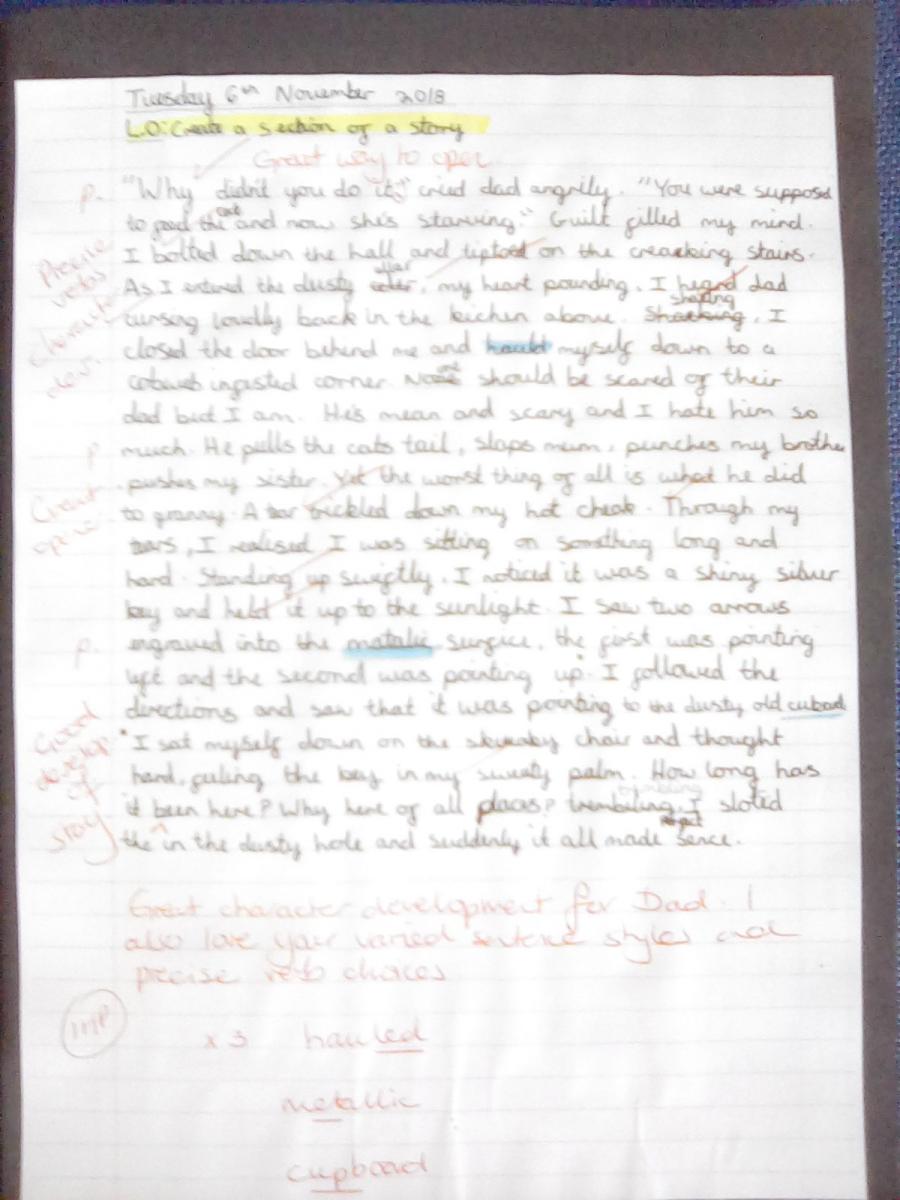 Tuesday 6th November 2018
L.O: Create a section of a story
Great way to open
p. "Why didn't you do it," cried dad angrily. "You were supposed
to feed the cat and now she's starving." Guilt filled my mind.
I bolted down the hall and tiptoed on the creacking stairs.
Precise verbs
As I entered the dusty cellar, my heart pounding, I heard dad
cursing loudly back in the kichen above. shaking Shacking, I
character dev.
closed the door behind me and hauld myself down to a
cobweb infested corner. No one should be scared of their
dad but I am. He's mean and scary and I hate him so
p much. He pulls the cats tail, slaps mum, punches my brother
pushes my sister. Yet the worst thing of all is what he did
Great opener
to granny. A tear trickled down my hot cheek. Through my
tears, I realised I was sitting on something long and
hard. Standing up swiftly, I noticed it was a shiny silver
key and held it up to the sunlight. I saw two arrows
p. engraved into the matalic surfice, the first was pointing
left and the second was pointing up. I followed the
directions and saw that it was pointing to the dusty old cubad
Good develop. of story
I sat myself down on the chair and thought
hard, feling the key in my sweaty palm. How long has
it been here? Why here of all places? trembiling, I sloted
the in the dusty hole and suddenly it all made sence.
Great character development for Dad. I
also love your varied sentence styles and
precise verb choices
imp
x3 hauled
metallic
cupboard